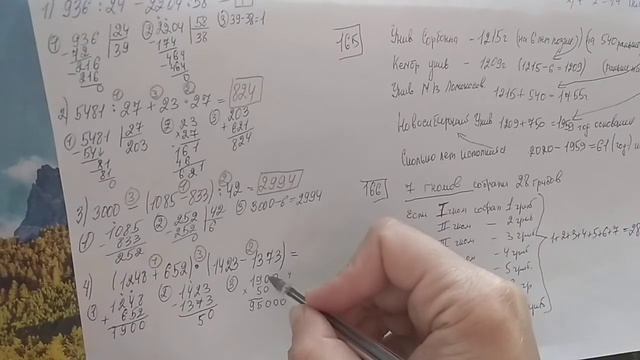 1) 936 : 24 - 2204 : 58 =
① 936 | 24
72 39
216
216
0
② 2204 | 58
174 38
464
464
0
③ 39-38=1
2) 5481 : 27 + 23 · 27 = 824
① 5481 | 27
54 203
81
81
0
② 23
× 27
161
46
621
③ 203
+ 621
824
3) 3000 - (1085 - 833) : 42 = 2994
① 1085
- 833
252
② 252 | 42
252 6
0
③ 3000-6=2994
4) (1248 + 652) · (1423 - 1373) =
① 1248
+ 652
1900
② 1423
- 1373
50
③ 1900
× 50
95000
165
Унив Сорбонна - 1215г
Кембр унив - 1209г (1215-6=1209)
Унив 1215+540=1755г
Новосибирский Унив 1209+750=1959 год основания
Сколько лет исполнится 2020-1959=61 (год)
166 7 гномов собрали 28 грибов
Если I гном собрал 1 гриб
II гном - 2 гриб
III гном - 3 гриб
- 4 гриб
- 5 гриб
1+2+3+4+5+6+7=28